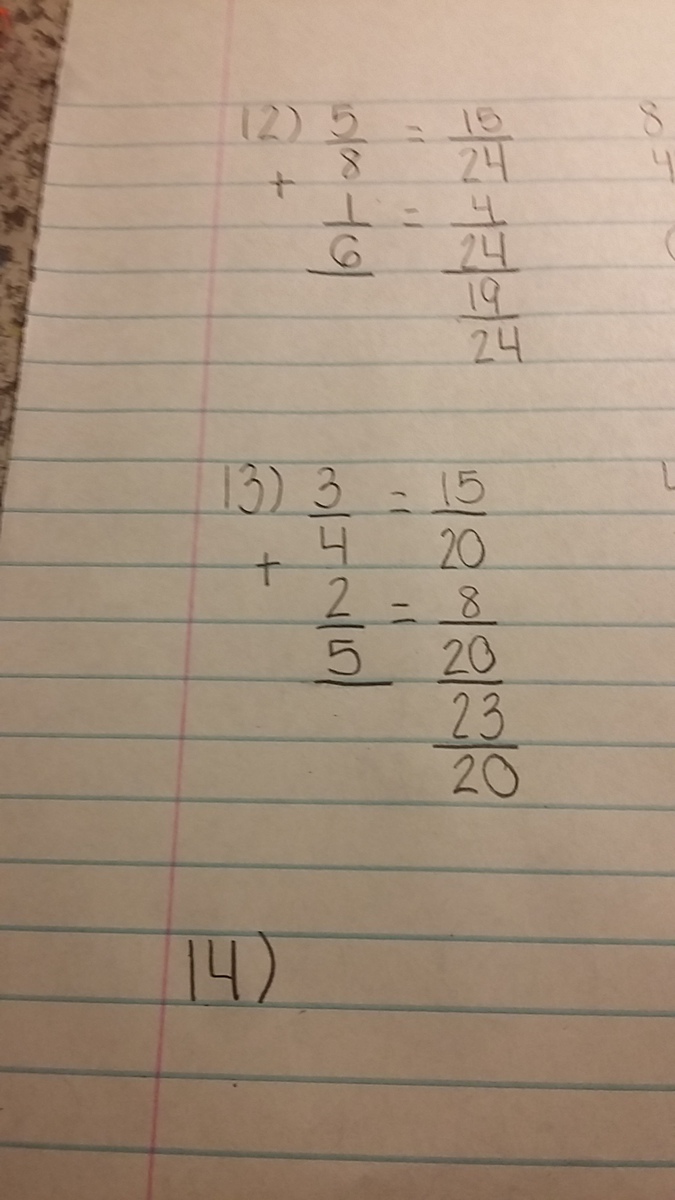 12) 5/8 = 15/24
+ 1/6 = 4/24
19/24
8
4
13) 3/4 = 15/20
+ 2/5 = 8/20
23/20
14)